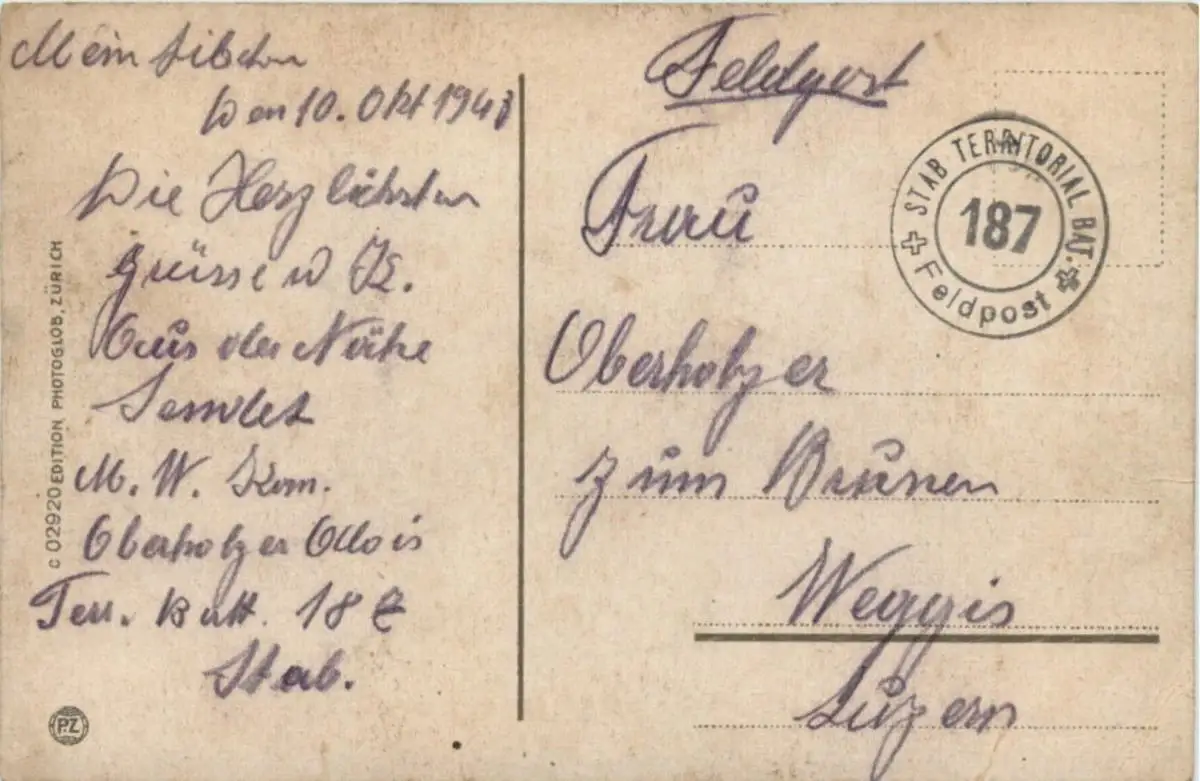 Mein Libster
Den 10. Okt 1941
Die Herzlichsten
Grüsse u K.
Aus der Nähe
Sendet
M. W. Kom.
Oberholzer Alois
Terr. Batt. 187
Stab.
C 02920 EDITION PHOTOGLOB, ZÜRICH
P.Z
Feldpost
STAB TERRITORIAL BAT.
187
Feldpost
Frau
Oberholzer
zum Brunen
Weggis
Luzern